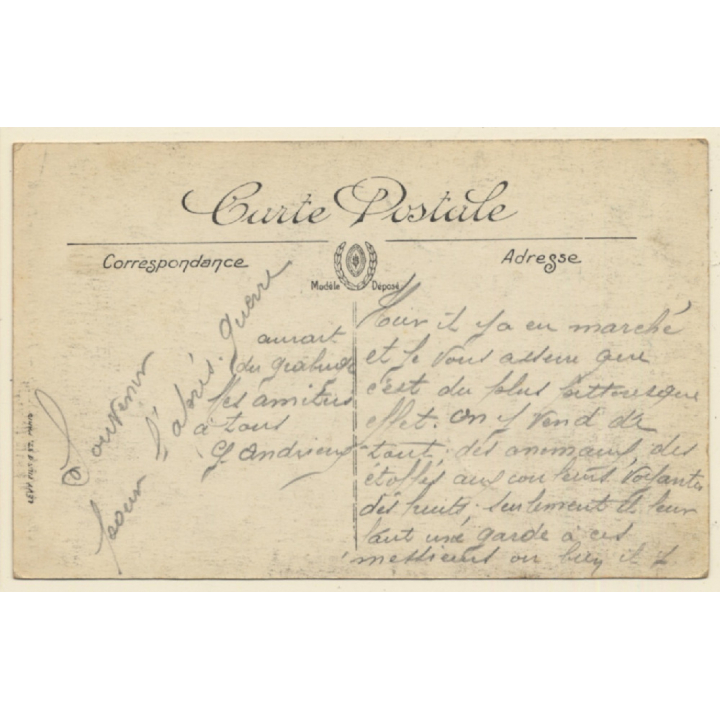 Carte Postale
Correspondance
Adresse
Modèle Déposé
Hier il y a eu marché
et je vous assure que
c'est du plus pittoresque
effet. On y vend de
tout, des animaux, des
étoffes aux couleurs voyantes
des fruits. seulement il leur
faut une garde à ces
messieurs ou bien il y
aurait
du grabuge
Mes amitiés
à tous
G Andrieux
Souvenir
pour l'après-guerre